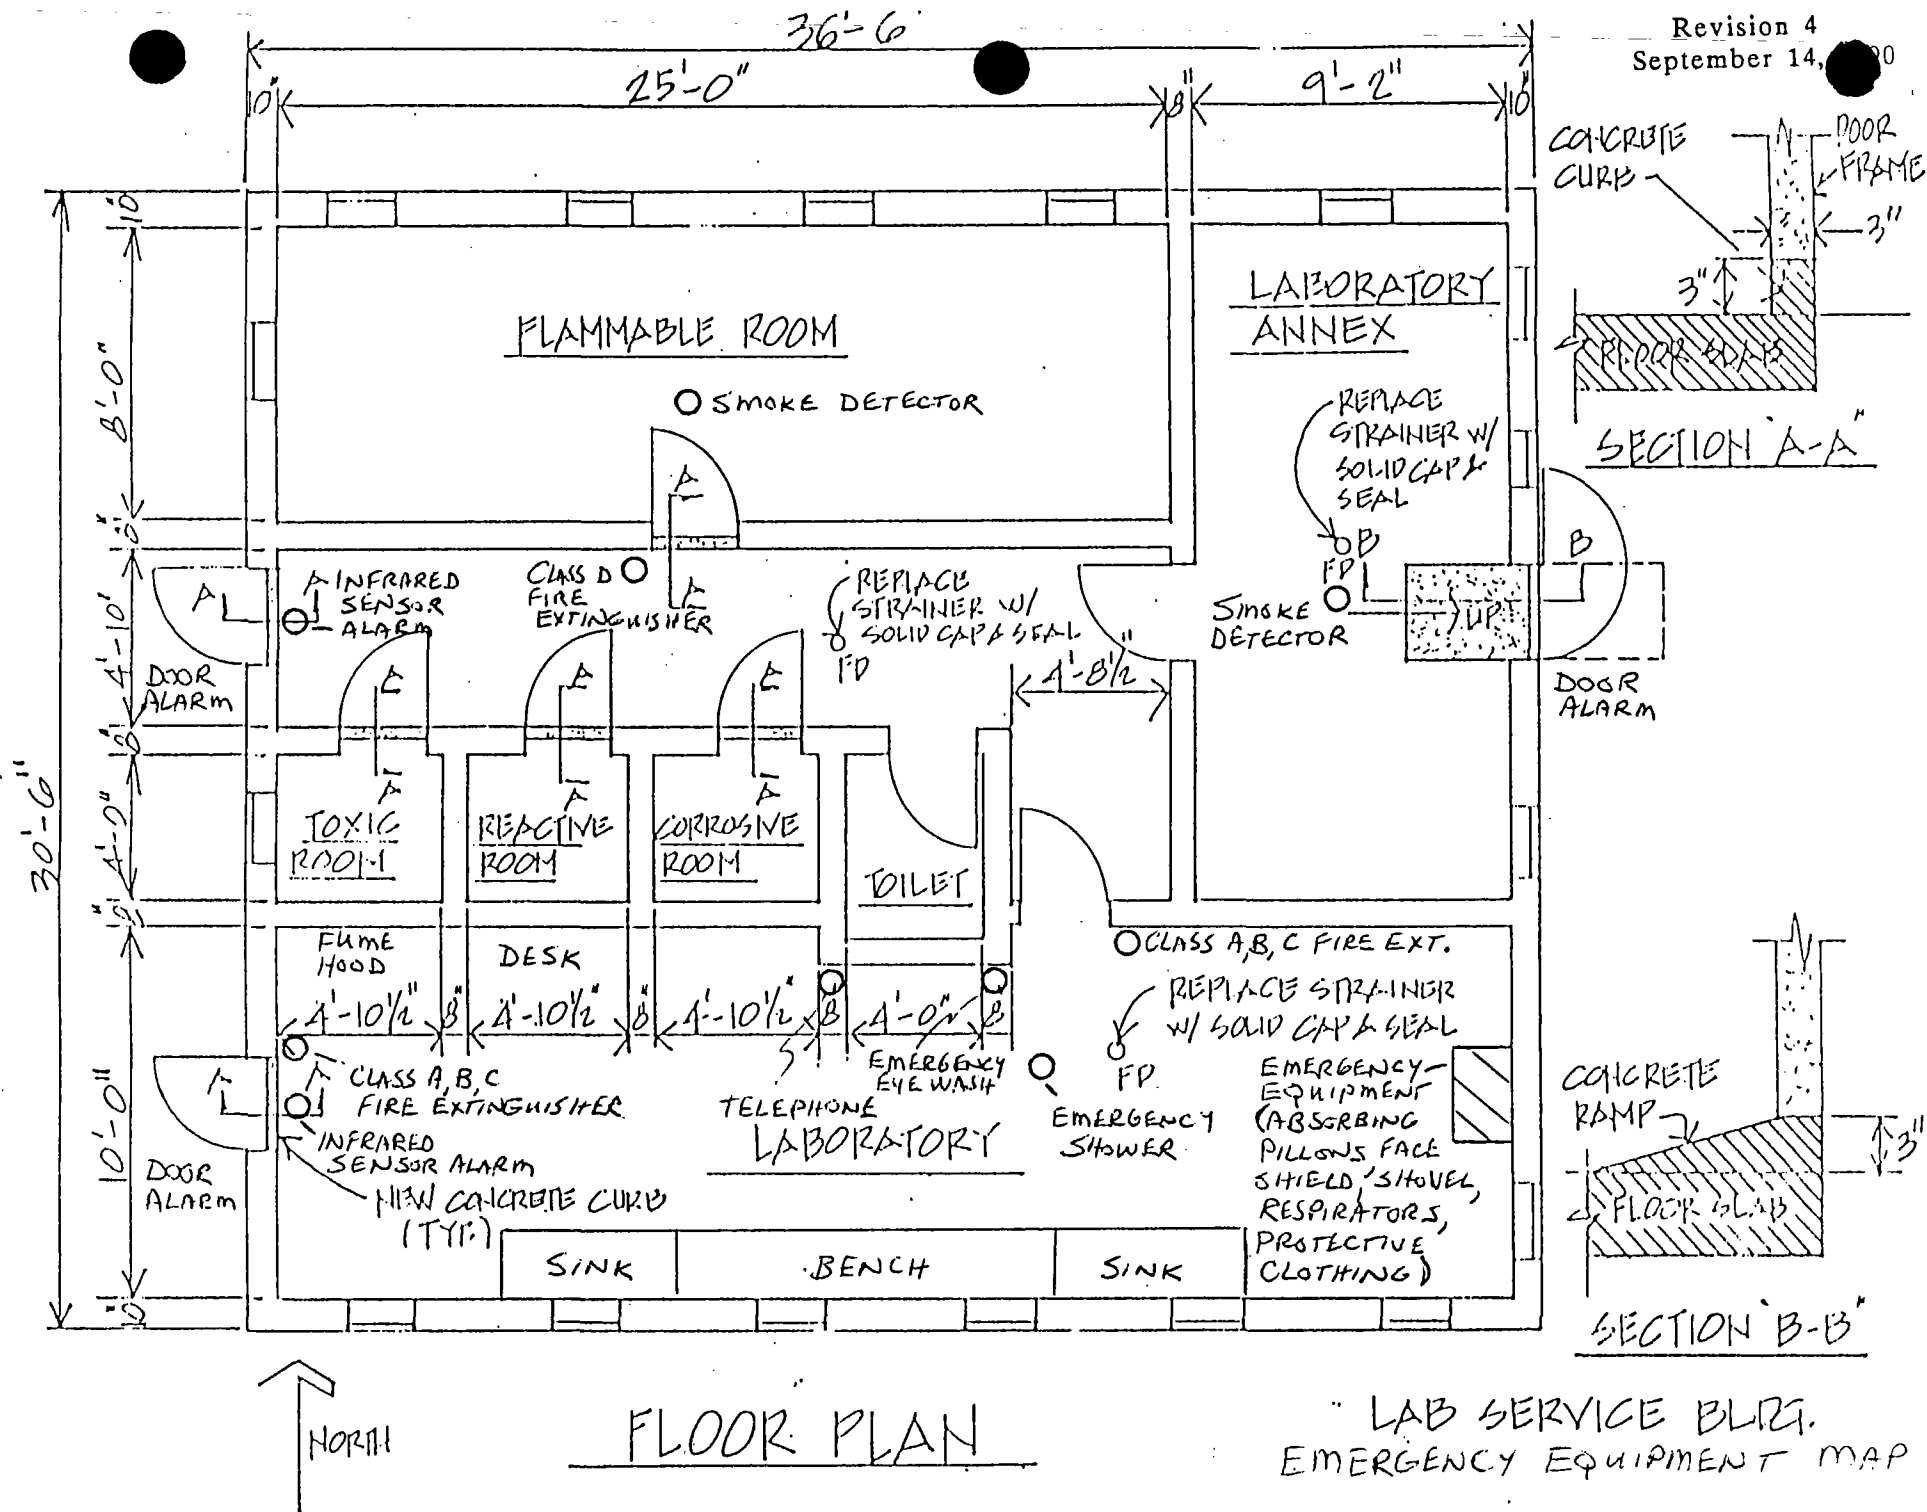 Revision 4
September 14,
36'-6
10"
25'-0"
8"
9'-2"
10"
CONCRETE
CURB
DOOR
FRAME
3"
3"
FLOOR SLAB
SECTION "A-A"
10"
8'-0"
8"
4'-10"
8"
4'-0"
8"
10'-0"
10"
30'-6"
FLAMMABLE ROOM
SMOKE DETECTOR
LABORATORY
ANNEX
REPLACE
STRAINER W/
SOLID CAP &
SEAL
FD
SMOKE
DETECTOR
UP
B
B
DOOR
ALARM
A
A
A
A
INFRARED
SENSOR
ALARM
CLASS D
FIRE
EXTINGUISHER
REPLACE
STRAINER W/
SOLID CAP & SEAL
FD
4'-8 1/2"
DOOR
ALARM
A
A
A
A
A
A
TOXIC
ROOM
REACTIVE
ROOM
CORROSIVE
ROOM
TOILET
FUME
HOOD
DESK
CLASS A,B,C FIRE EXT.
4'-10 1/2"
8"
4'-10 1/2"
8"
4'-10 1/2"
8
4'-0"
8
REPLACE STRAINER
W/ SOLID CAP & SEAL
FD
A
A
CLASS A,B,C
FIRE EXTINGUISHER
INFRARED
SENSOR ALARM
DOOR
ALARM
NEW CONCRETE CURB
(TYP.)
TELEPHONE
EMERGENCY
EYE WASH
EMERGENCY
SHOWER
LABORATORY
EMERGENCY
EQUIPMENT
(ABSORBING
PILLOWS FACE
SHIELD, SHOVEL,
RESPIRATORS,
PROTECTIVE
CLOTHING)
SINK
BENCH
SINK
CONCRETE
RAMP
3"
FLOOR SLAB
SECTION "B-B"
NORTH
FLOOR PLAN
LAB SERVICE BLDG.
EMERGENCY EQUIPMENT MAP